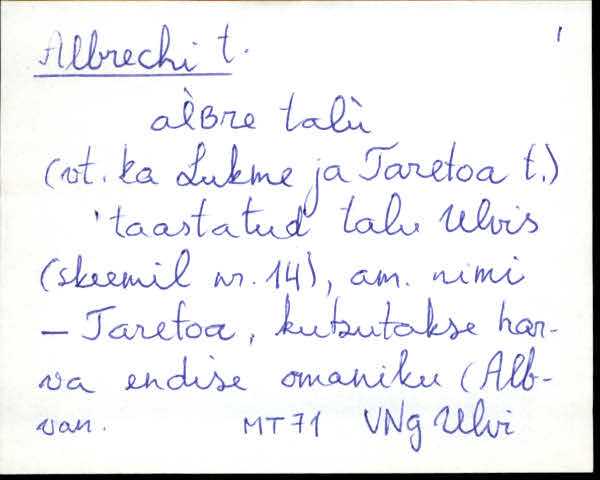 Albrechi t.
1
àlʙre talù
(vt. ka Lukme ja Taretoa t.)
'taastatud talu Ulvis
(skeemil nr. 14), am. nimi
– Taretoa, kutsutakse har-
va endise omaniku (Alb-
van. MT 71 VNg Ulvi